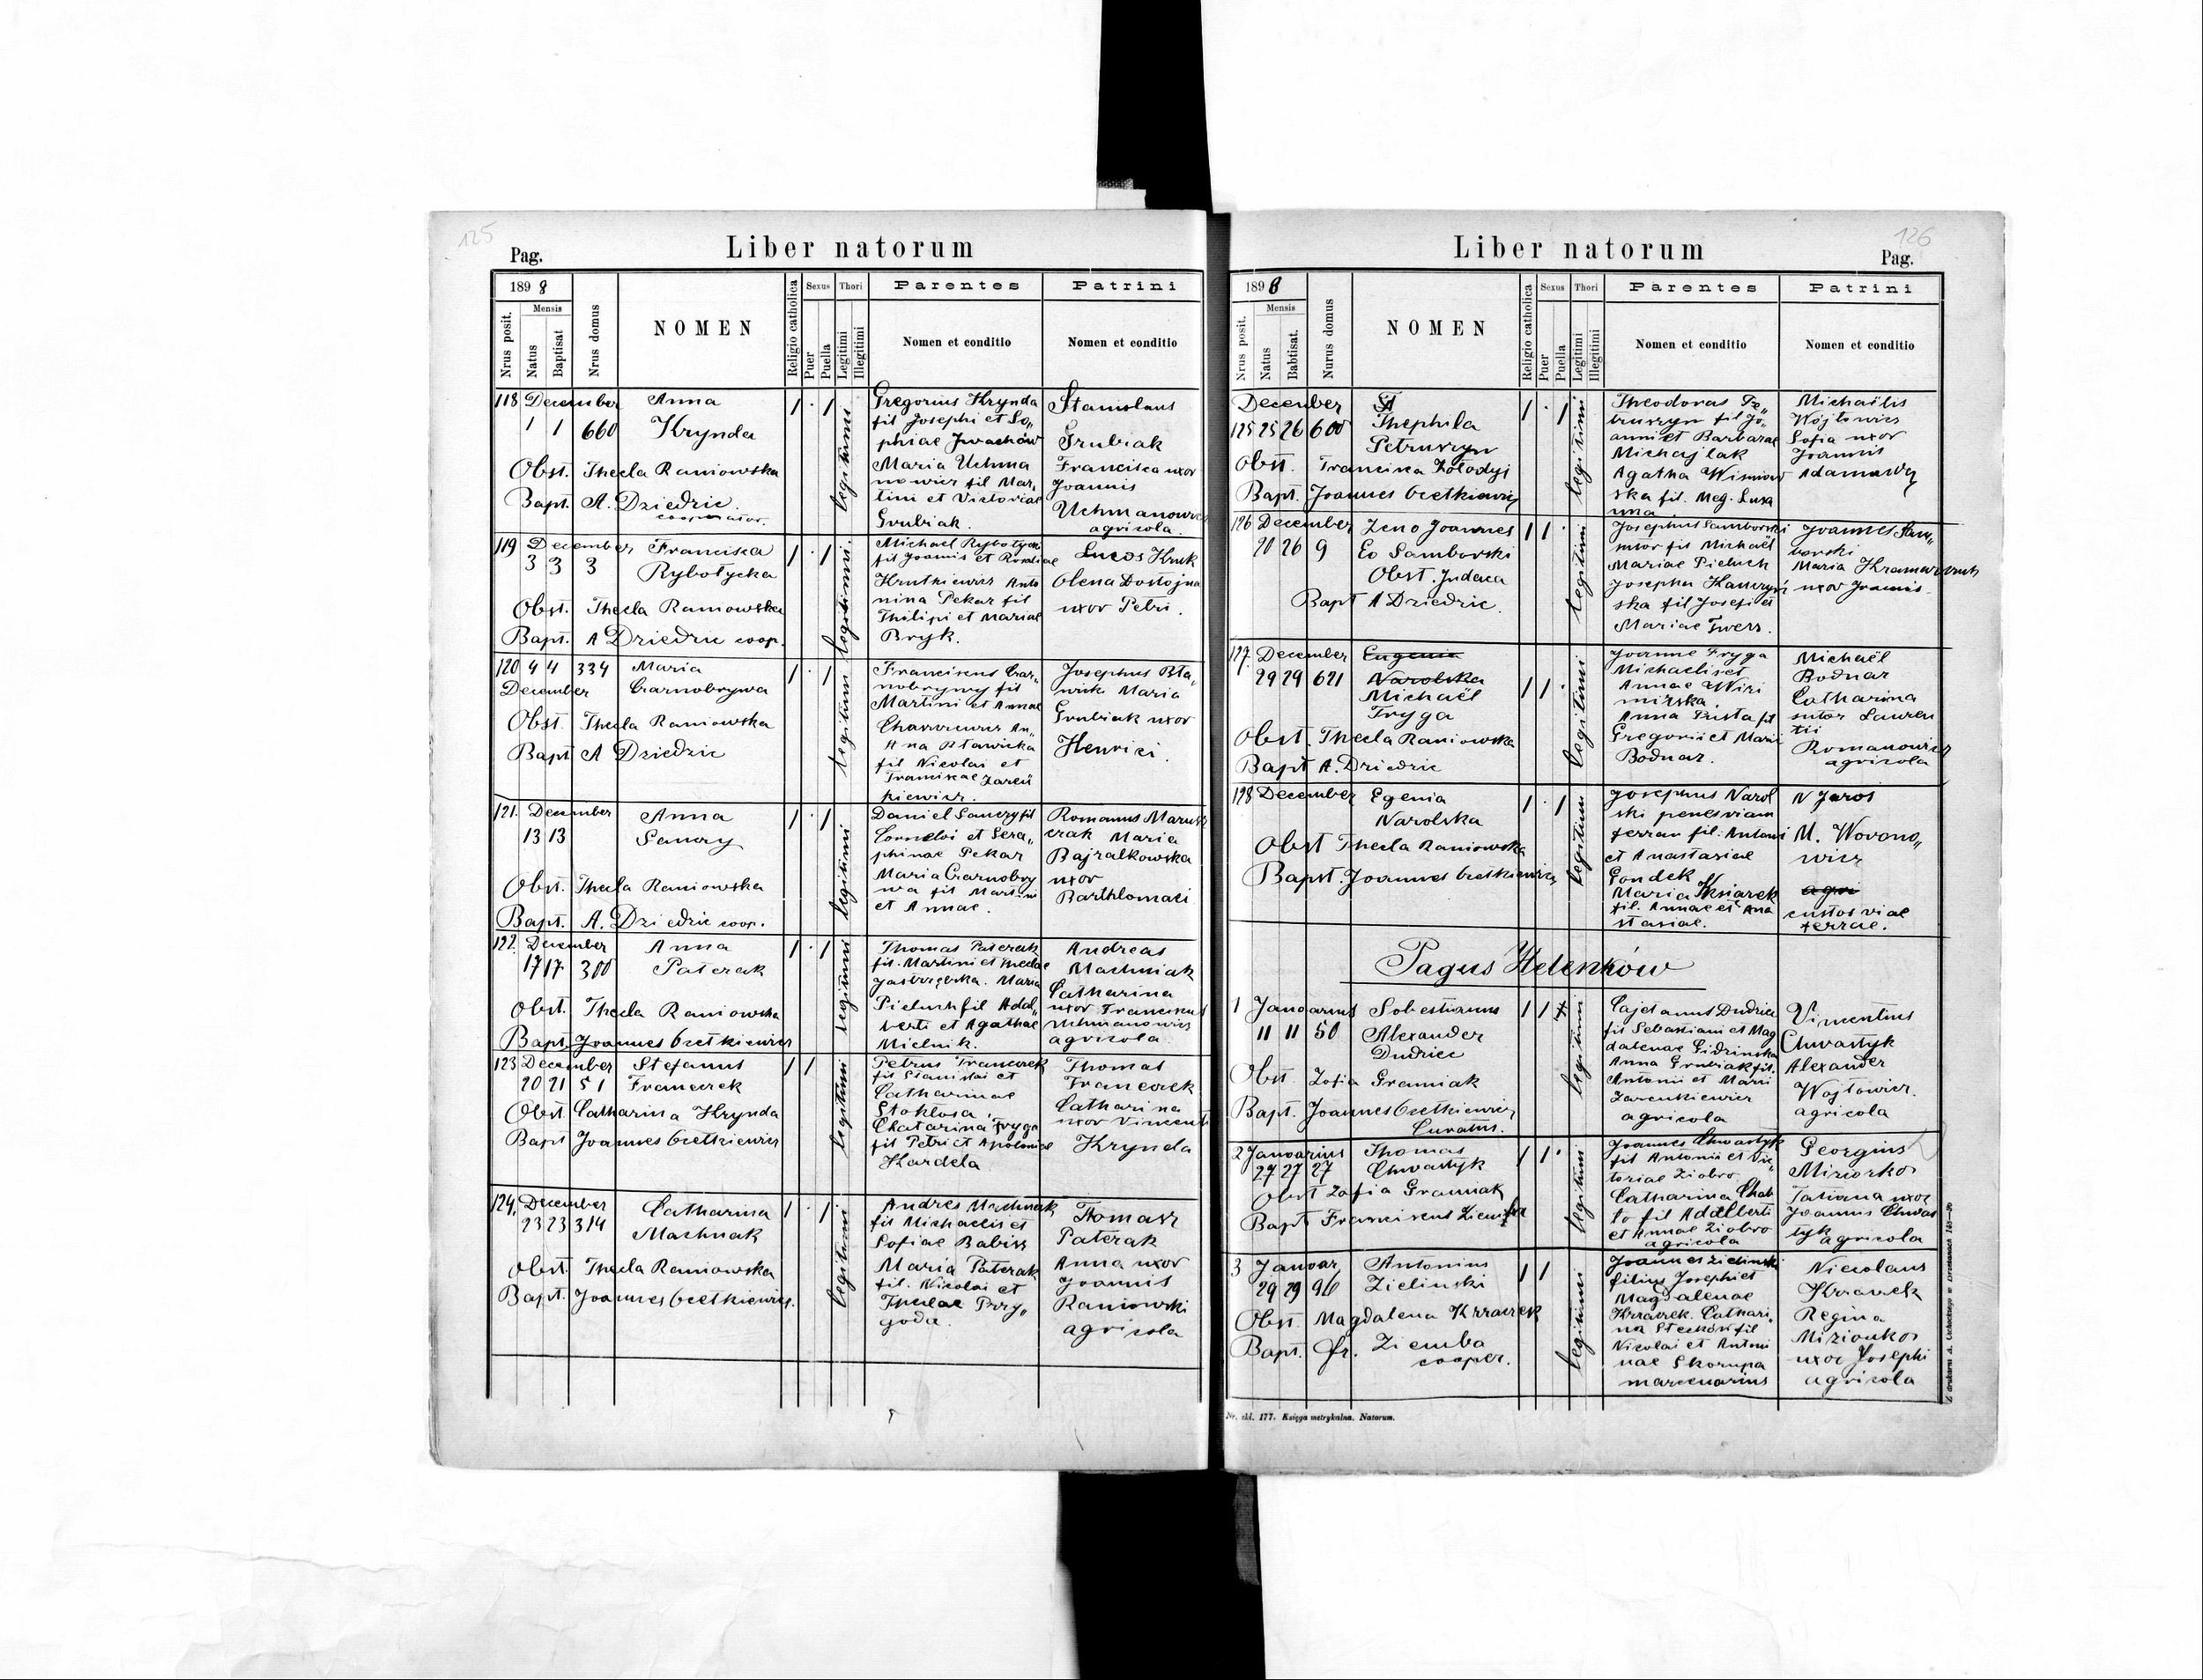 125
Pag.
Liber natorum
1898
Nrus posit.
Mensis
Natus
Baptisat
Nrus domus
NOMEN
Religio catholica
Sexus
Puer
Puella
Thori
Legitimi
Illegitimi
Parentes
Nomen et conditio
Patrini
Nomen et conditio
118 December
1 1 660
Anna
Krynda
1 · 1
legitimi
Gregorius Krynda
fil Josephi et So„
phiae Iwachów
Maria Uchma
nowicz fil Mar„
tini et Victoriae
Grubiak.
Stanislaus
Grubiak
Francisca uxor
Joannis
Uchmanowicz
agricola
Obst. Thecla Raniowska
Bapt. A. Dziedzic
cooperator.
119 December
3 3 3
Francisca
Rybotycka
1 · 1
legitimi
Michael Rybotycki
fil Joannis et Rosaliae
Hrutkiewicz Anto
nina Pekar fil
Philipi et Mariae
Bryk.
Lucas Kruk
Olena Dostojna
uxor Petri.
Obst. Thecla Raniowska
Bapt. A Dziedzic coop.
120 4 4 334
December
Maria
Czarnobrywa
1 · 1
legitimi
Franciscus Czar„
nobrywy fil
Martini et Annae
An„
na Bławicka
fil Nicolai et
Franciscae Zareń
kiewicz.
Josephus Bła„
wick Maria
Grubiak uxor
Henrici.
Obst. Thecla Raniowska
Bapt A Dziedzic
121. December
13 13
Anna
1 · 1
legitimi
Daniel
Cornelii et Sera„
phinae Pekar
Maria Czarnobry
wa fil Martini
et Annae.
Romanus
Maria
Bajralkowska
uxor
Barthlomaei
Obst. Thecla Raniowska
Bapt. A. Dziedzic coop.
122. December
17 17 300
Anna
Paterak
1 · 1
legitimi
Thomas Paterak
fil. Martini et Theclae
Maria
Pieluch fil Adal„
berti et Agathae
Mielnik.
Andreas
Machniak
Catharina
uxor Francisci
Uchmanowicz
agricola
Obst. Thecla Raniowska
Bapt. Joannes Cretkiewicz
123 December
20 21 51
Stefanus
Francrek
1 1
legitimi
Petrus Francrek
fil Stanislai et
Catharinae
Stokłosa.
Chatarina Fryga
fil Petri et Apoloniae
Kardela
Thomas
Francrek
Catharina
uxor Vincenti
Krynda
Obst Catharina Krynda
Bapt Joannes Cretkiewicz
124. December
23 23 314
Catharina
Machnak
1 · 1
legitimi
Andres Machnak
fil Michaelis et
Sofiae Babisz
Maria Paterak
fil. Nicolai et
Theclae Przy„
goda.
Tomasz
Paterak
Anna uxor
Joannis
Raniowski
agricola
Obst. Thecla Raniowska
Bapt. Joannes Cretkiewicz.
126
Liber natorum
Pag.
1898
Nrus posit.
Mensis
Natus
Babtisat.
Nurus domus
NOMEN
Religio catholica
Sexus
Puer
Puella
Thori
Legitimi
Illegitimi
Parentes
Nomen et conditio
Patrini
Nomen et conditio
December
125 25 26 600
Thephila
Petruszyn
1 · 1
legitimi
Theodorus Pe„
truszyn fil Jo„
anni et Barbarae
Michajlak
Agatha Wisniow
ska fil. Meg. Luxa
nna
Michaëlis
Wójtowicz
Sofia uxor
Joannis
Adamowicz
Obst. Francisca Kołodyj
Bapt. Joannes Cretkiewicz
126 December
20 26 9
Zeno Joannes
Ev Samborski
1 1 ·
legitimi
Josephus Samborski
fil Michaël
Mariae Pieluch
Josepha
ska fil Josefi et
Mariae Twerz.
Joannes Sam„
borski
Maria
uxor Joannis
Obst. Judaea
Bapt A Dziedzic.
127. December
29 29 621
Eugenia
Narolska
Michaël
Fryga
1 1 ·
legitimi
Joanne Fryga
Michaelis et
Annae Wiri
mirska.
Anna Pusta fil
Gregorii et Marii
Bodnar.
Michaël
Bodnar
Catharina
uxor Lauren
tii
Romanowicz
agricola
Obst. Thecla Raniowska
Bapt A. Dziedzic
128 December
Egenia
Narolska
1 · 1
legitimi
Josephus Narol
ski penes viam
ferrae fil. Antoni
et Anastasiae
Gondek
Maria Ksiarek
fil. Annae et Ana
stasiae.
N Jaros
M. Worono„
wicz
agri
custos viae
ferrae.
Obst Thecla Raniowska
Bapst. Joannes Cretkiewicz
Pagus Helenków
1 Januarius
11 11 50
Sobestianus
Alexander
Dudzicz
1 1
legitimi
Cajetanus Dudzicz
fil Sebastiani et Mag
dalenae Gidzinska
Anna Grubiak fil.
Antonii et Marii
Zarenkiewicz
agricola
Vincentius
Chwastyk
Alexander
Wojtowicz.
agricola
Obst. Zofia Graniak
Bapt. Joannes Cretkiewicz
Curatus.
2 Januarius
27 27 27
Thomas
Chwastyk
1 1 ·
legitimi
Joannes Chwastyk
fil Antonii et Vic„
toriae Ziobro
Catharina Chab
to fil Adalberti
et Annae Ziobro
agricola
Georgius
Miziorko
Tatiana uxor
Joannis Chwas
tyk
agricola
Obst Zofia Graniak
Bapt Franciscus Ziemba
3 Januar
29 29 96
Antonius
Zielinski
1 1
legitimi
Joannes Zielinski
filius Josephi et
Magdalenae
Krzaczek. Cathari„
na Steckow fil
Nicolai et Antoni
nae Skorupa
mercenarius
Nicolaus
Krzaczek
Regina
Mizionko
uxor Josephi
agricola
Obst. Magdalena Krzaczek
Bapt. fr. Ziemba
cooper.
Nr. skl. 177. Księga metrykalna. Natorum.